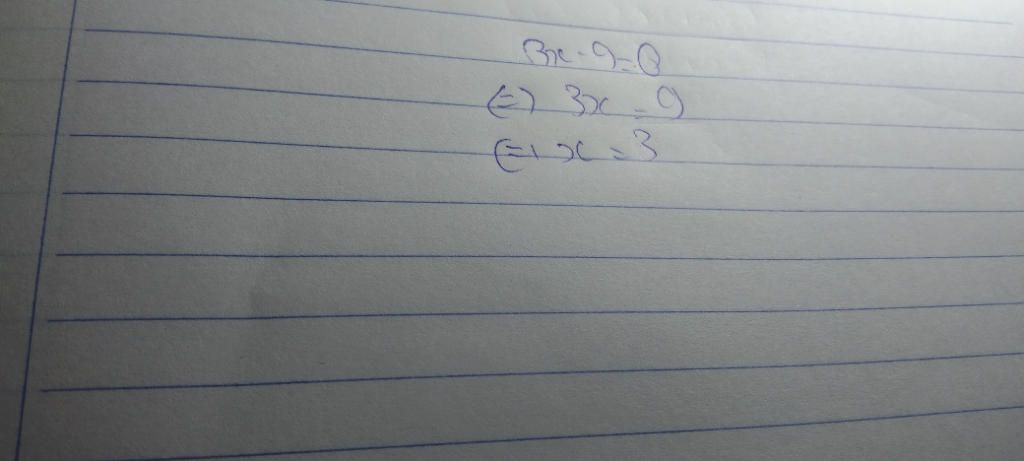 3x - 9 = 0
(=) 3x = 9
(=) x = 3